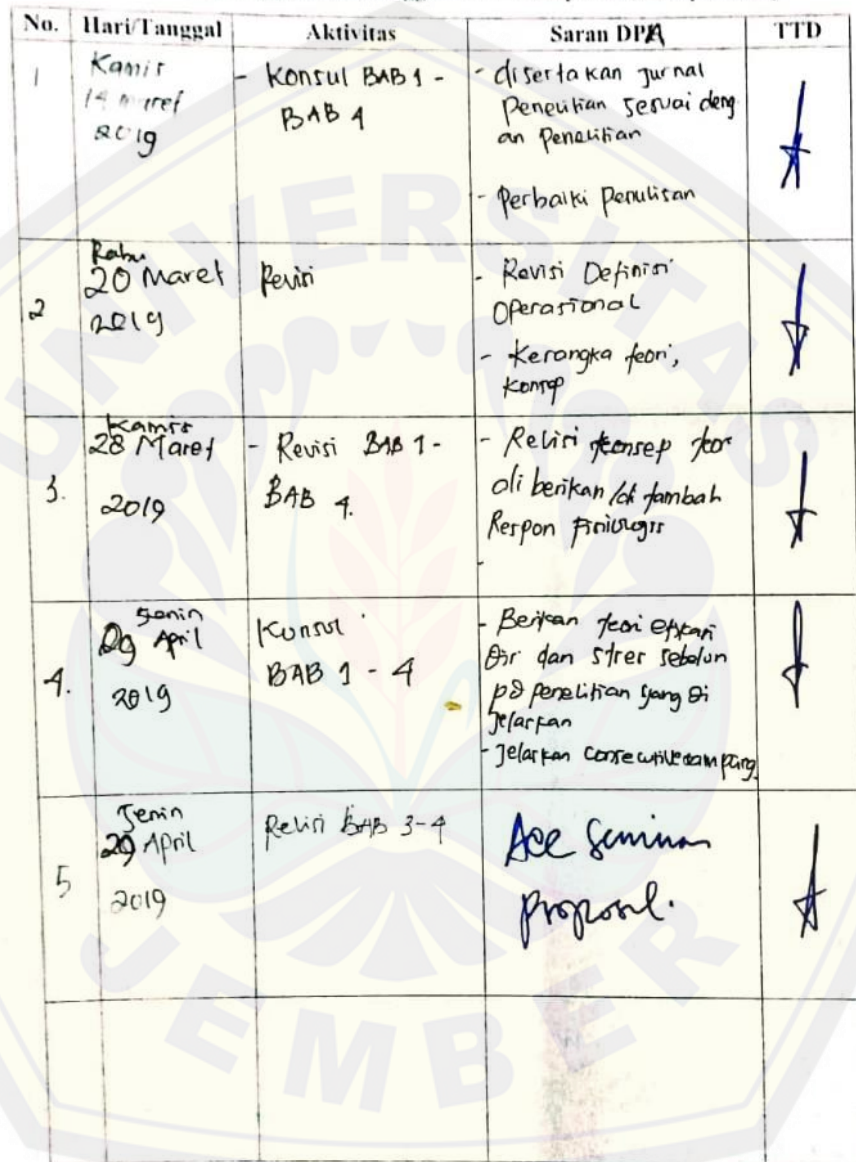 No. Hari/Tanggal Aktivitas Saran DPA TTD
1
Kamis
14 maret
2019
- Konsul BAB 1 -
BAB 4
- disertakan jurnal
Penelitian sesuai deng
an Penelitian
- Perbaiki Penulisan
2
Rabu
20 Maret
2019
Revisi
- Revisi Definisi
Operasional
- Kerangka teori,
Konsep
3.
Kamis
28 Maret
2019
- Revisi BAB 1 -
BAB 4.
- Revisi konsep teor
di berikan /di tambah
Respon Fisiologis
-
4.
Senin
April
2019
Konsul
BAB 1 - 4
- Berikan teori efikasi
Diri dan stres sebelum
pd penelitian yang di
jelaskan
- Jelaskan consecutive sampling
5
Senin
29 April
2019
Revisi BAB 3-4
Acc Seminar
Proposal.
UNIVERSITAS
JEMBER